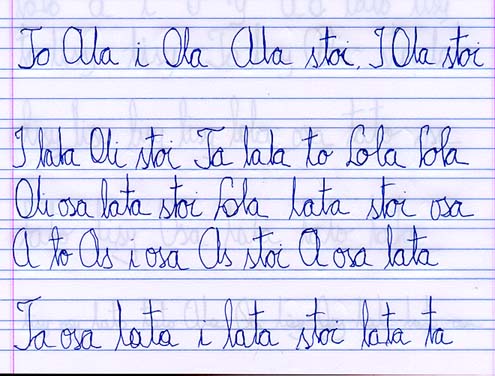 To Ala i Ola Ala stoi. I Ola stoi
I lala Oli stoi Ta lala to Lola Lola
Oli osa lata stoi Lola Lata stoi osa
A to As i osa As stoi A osa lata
Ta osa lata i lata stoi lata ta